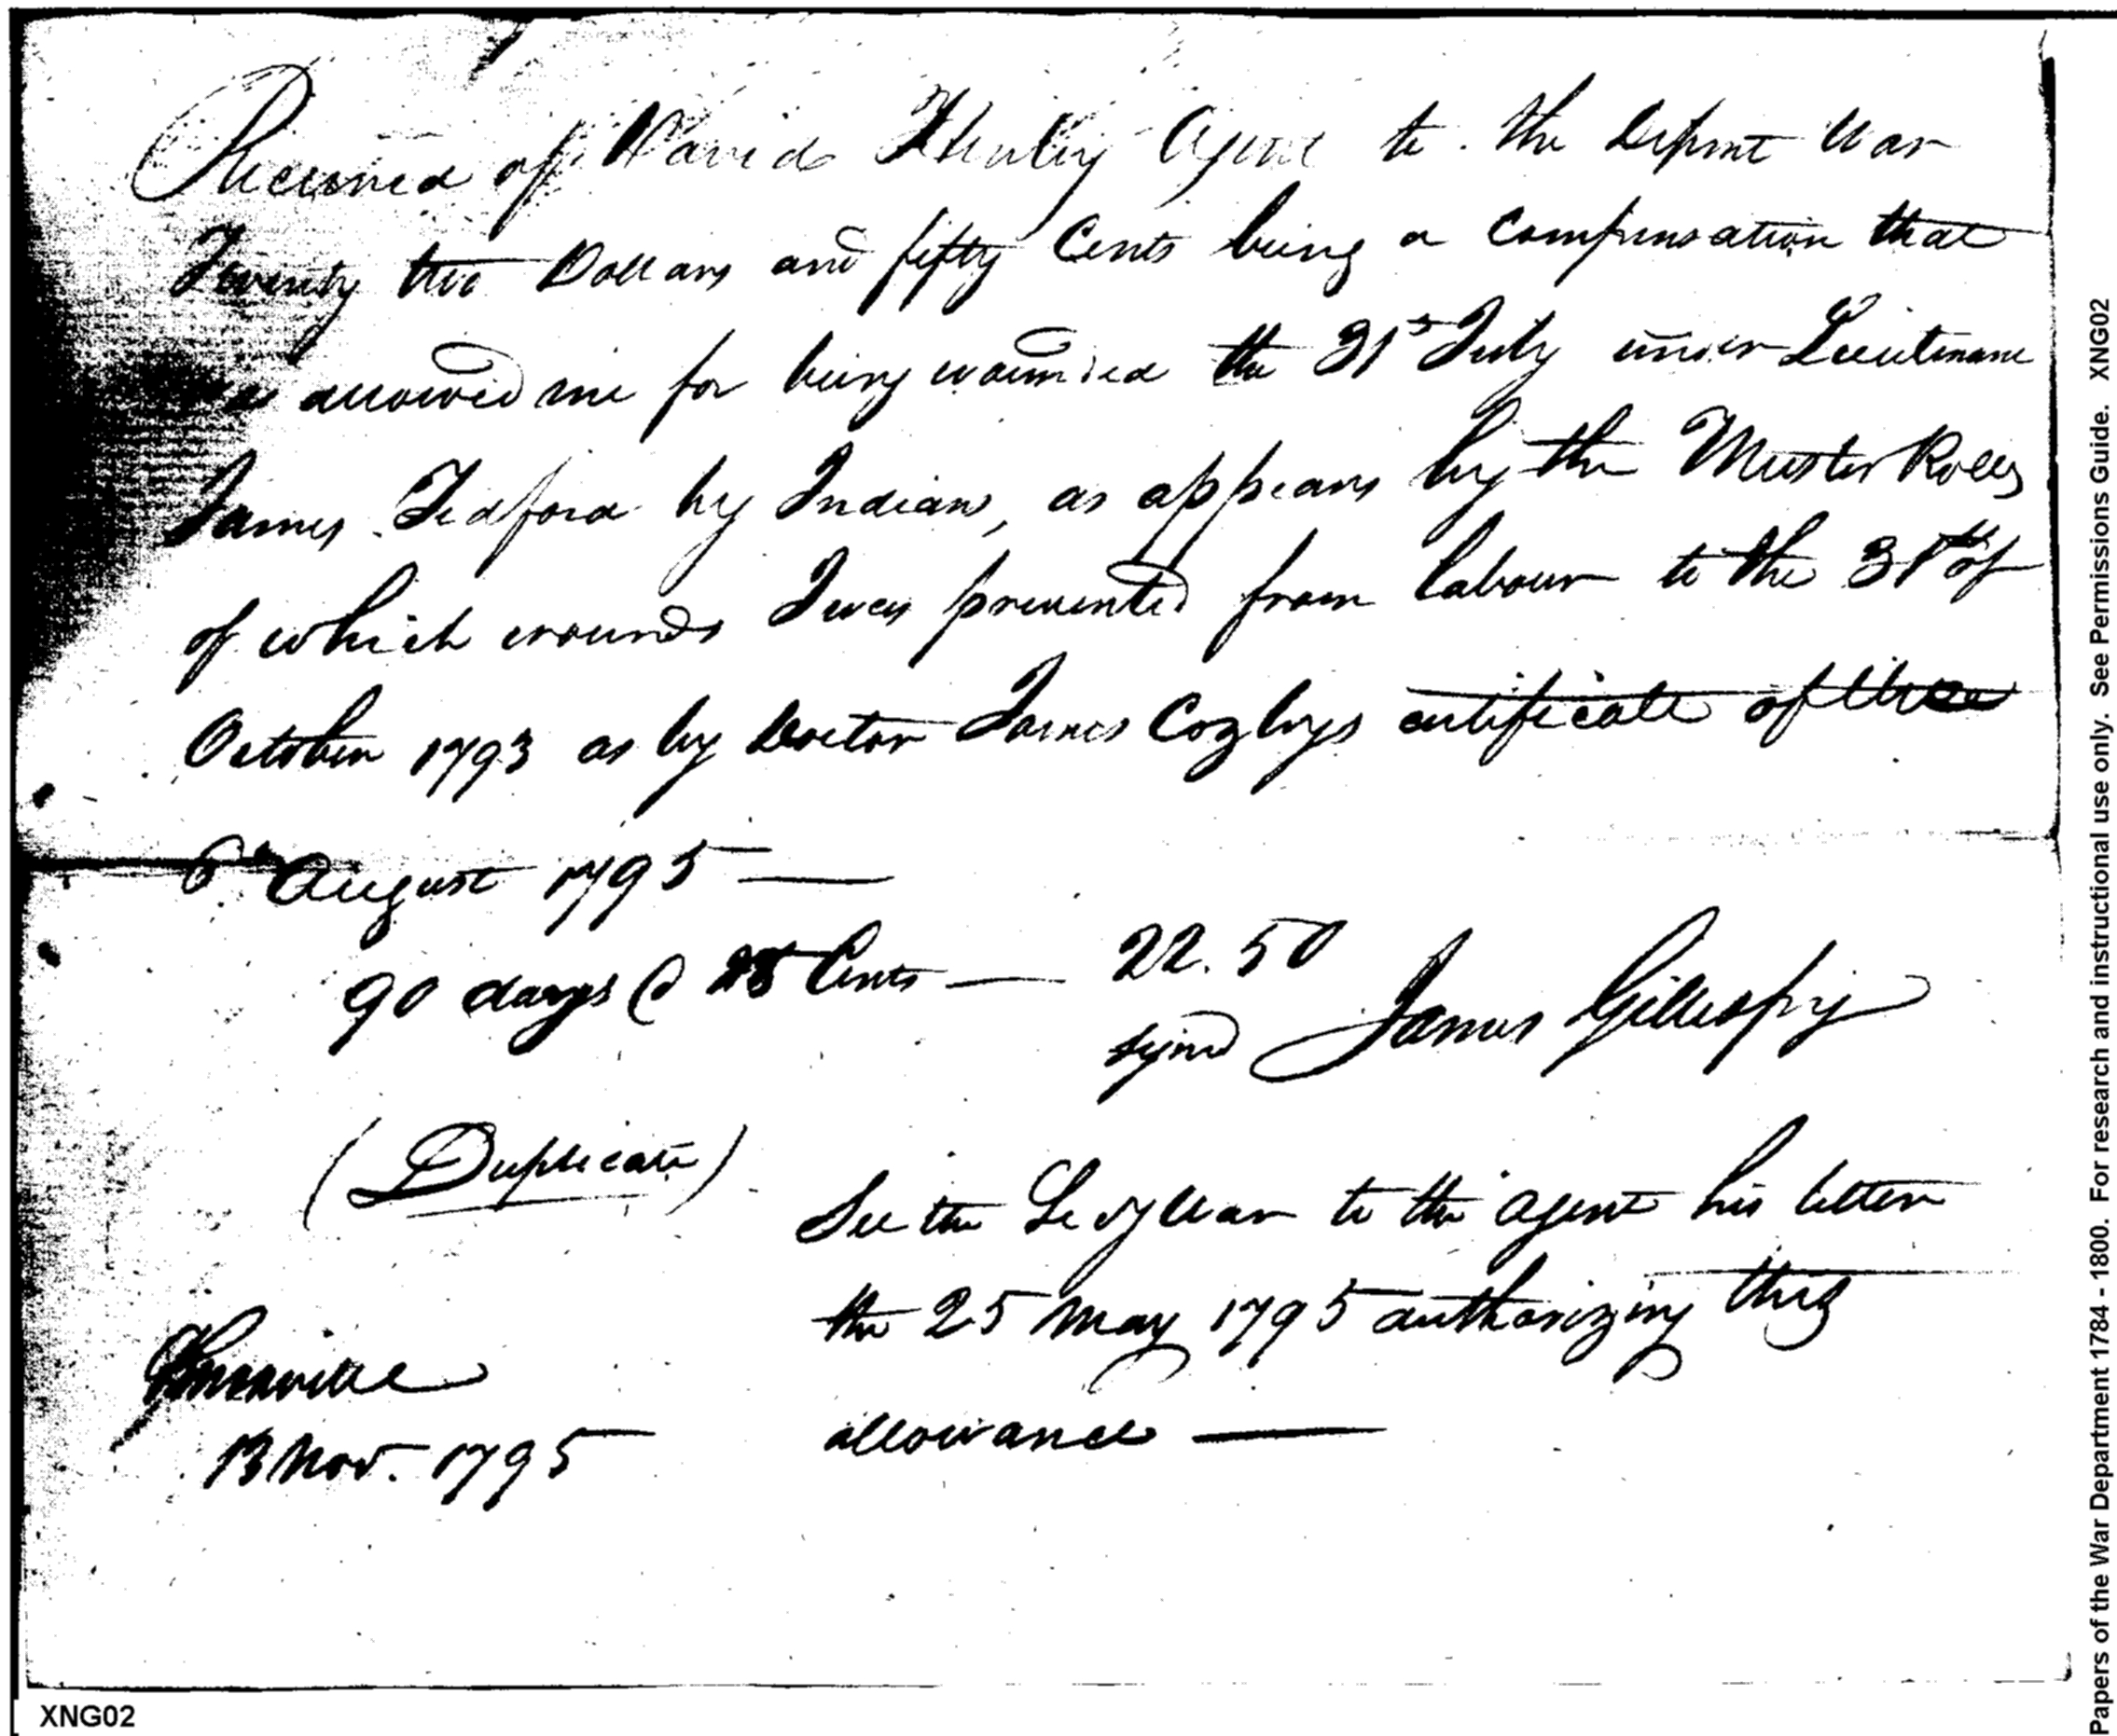 Received of David Henley Agent to the Depmt War
Twenty two Dollars and fifty Cents being a Compensation that
allowed me for being wounded the 31st July under Lieutenant
James Tedford by Indians, as appears by the Muster Rolls
of which wounds I was prevented from labour to the 31st of
October 1793 as by Doctor James Cozbys certificate of the
6th August 1795 —
90 days @ 25 Cents — 22.50
signd James Gillespy
(Duplicate)
See the Secy War to the Agent his letter
the 25 May 1795 authorizing this
allowance —
Knoxville
13 Nov. 1795
XNG02
Papers of the War Department 1784 - 1800. For research and instructional use only. See Permissions Guide. XNG02